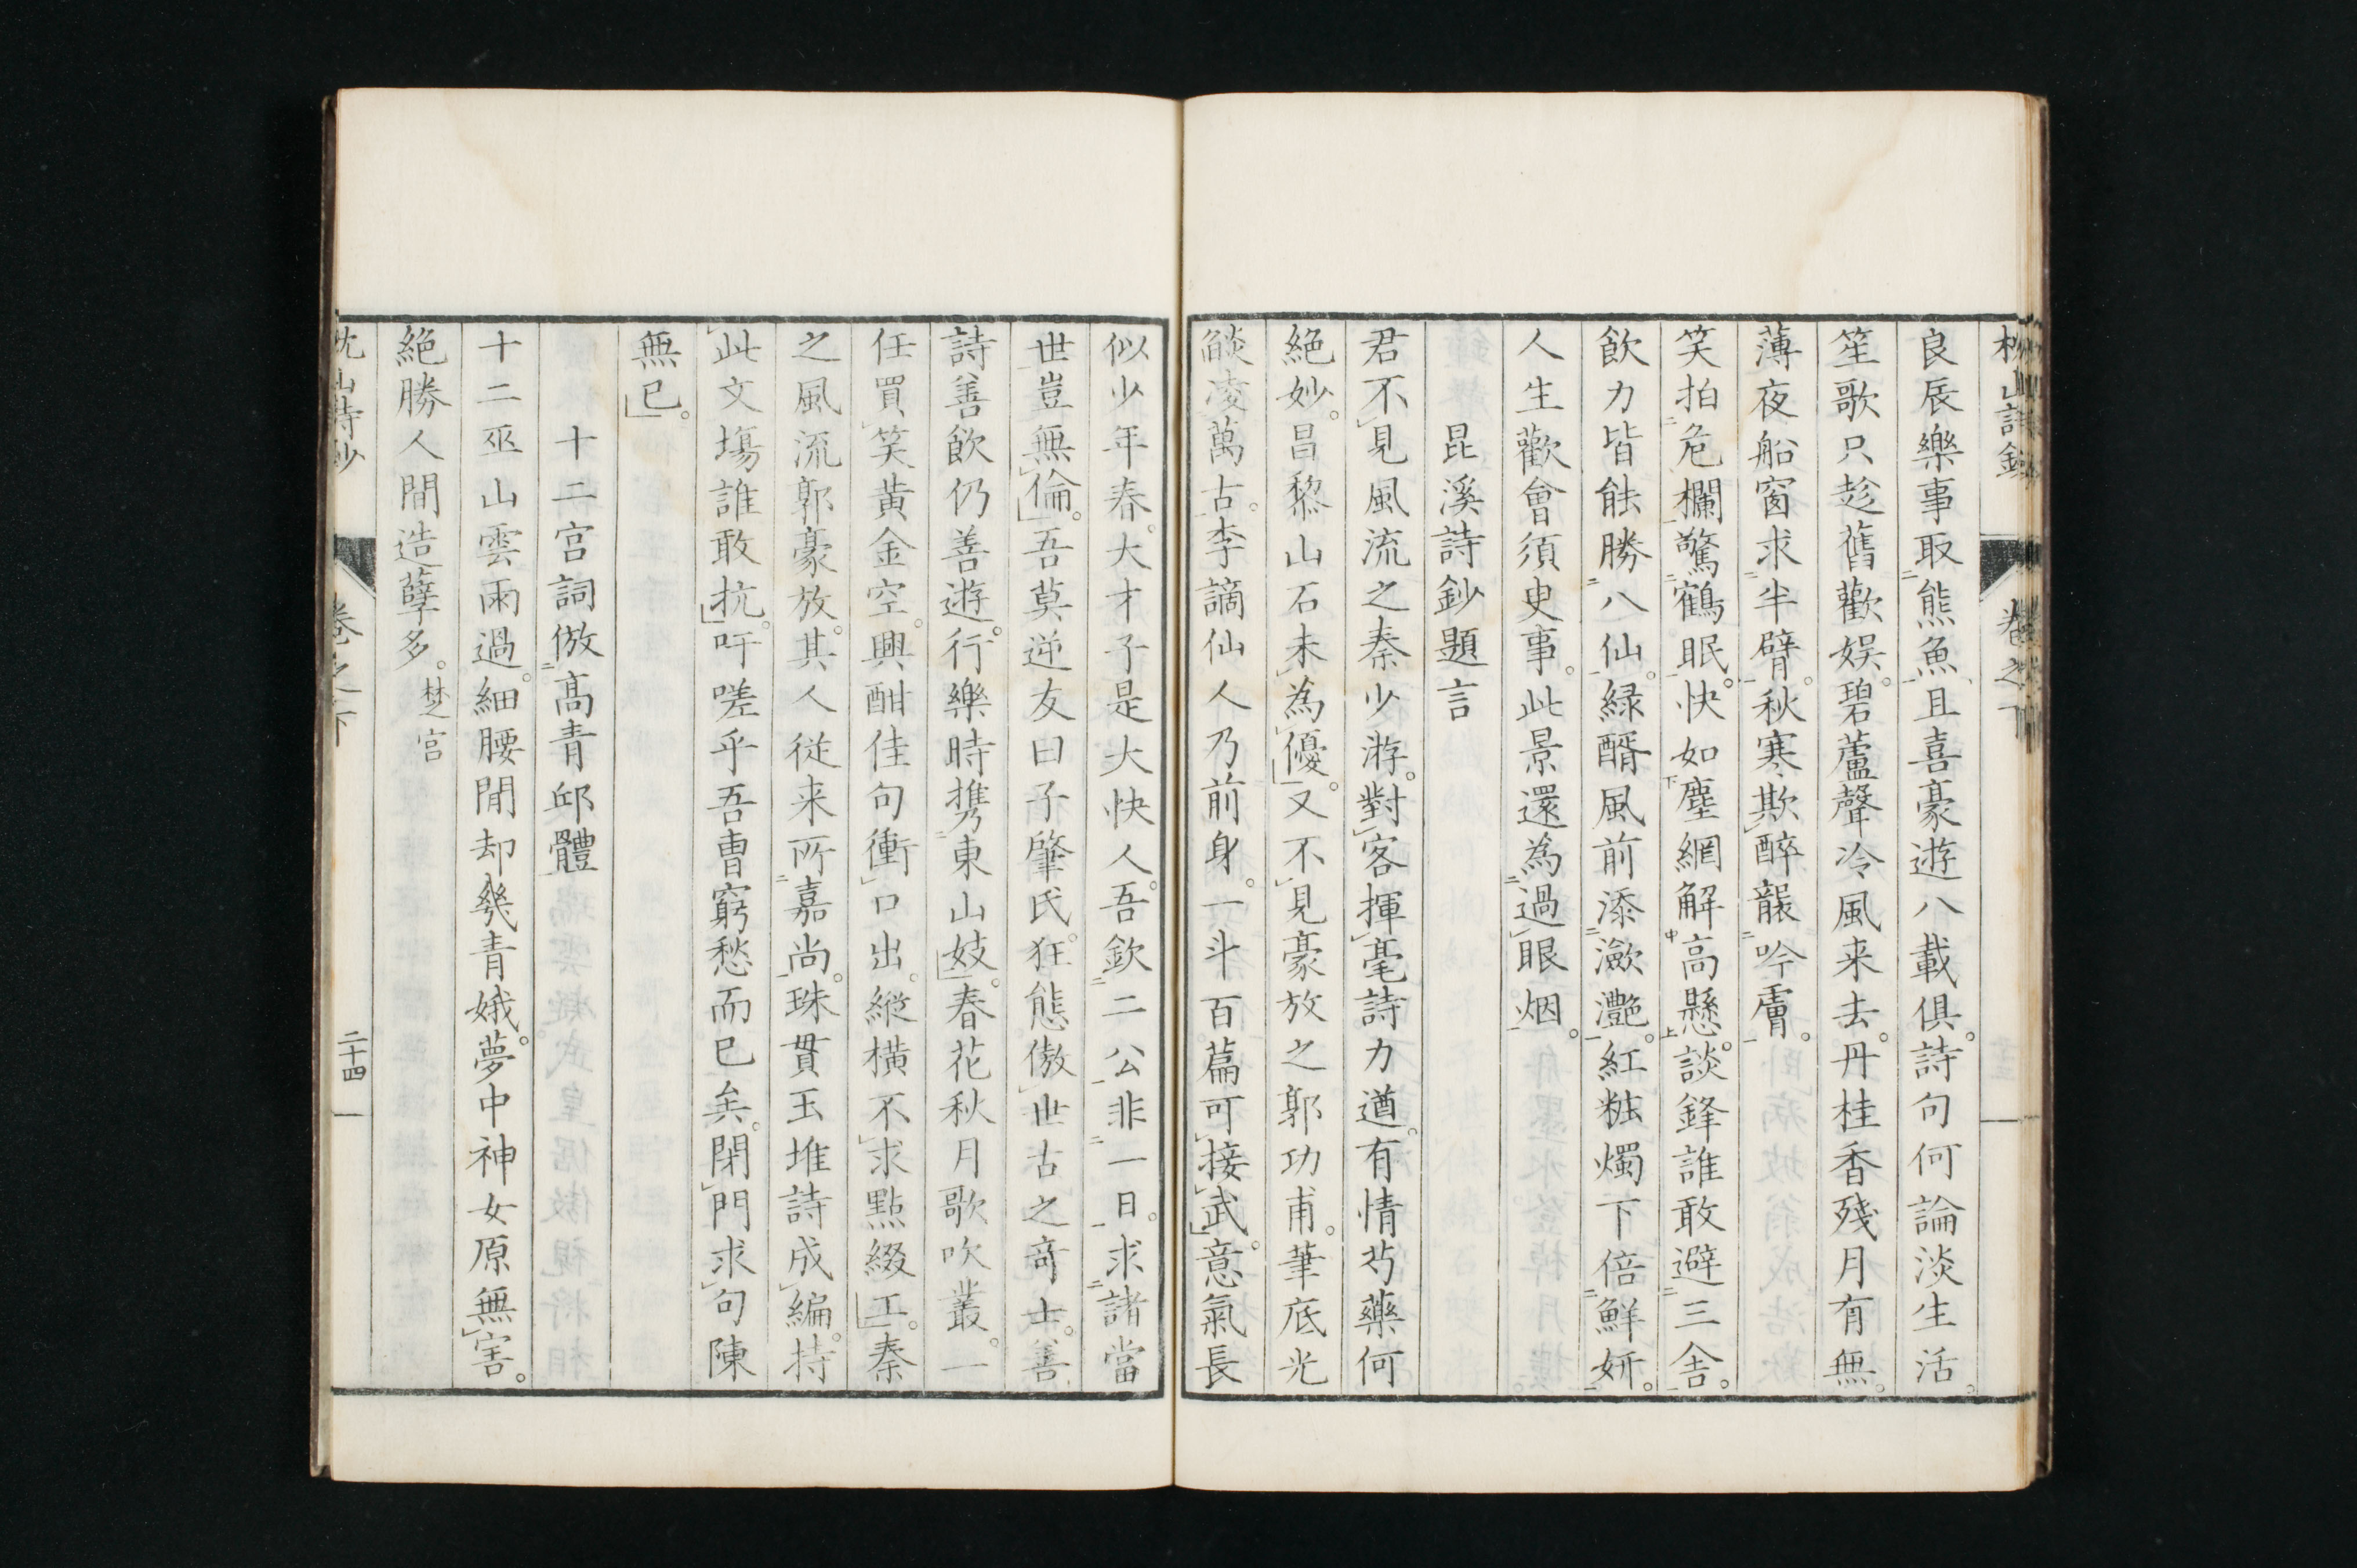 良辰樂事取熊魚且喜豪遊八載俱。詩句何論淡生活。
笙歌只趁舊歡娯。碧蘆聲冷風来去。丹桂香殘月有無。
薄夜船窗求半臂。秋寒欺醉襲吟膚。
笑拍危欄驚鶴眠。快如塵網解高懸。談鋒誰敢避三舎。
飲力皆能勝八仙。緑醑風前添瀲灧。紅粧燭下倍鮮妍。
人生歡會須臾事。此景還為過眼烟。
昆溪詩鈔題言
君不見風流之秦少游。對客揮毫詩力遒。有情芍藥何
絶妙。昌黎山石未為優。又不見豪放之郭功甫。筆底光
燄凌萬古。李謫仙人乃前身。一斗百篇可接武。意氣長
似少年春。大才子是大快人。吾欽二公非一日。求諸當
世豈無倫。吾莫逆友曰子肇氏。狂態傲世古之竒士。善
詩善飲仍善遊。行樂時携東山妓。春花秋月歌吹叢。一
任買笑黄金空。興酣佳句衝口出。縱横不求點綴工。秦
之風流郭豪放。其人従来所嘉尚。珠貫玉堆詩成編。持
此文塲誰敢抗。吁嗟乎吾曹窮愁而已矣。閉門求句陳
無已。
十二宮詞倣髙青邱體
十二巫山雲雨過。細腰閒却幾青娥。夢中神女原無害。
絶勝人間造孽多。楚宮
卷之下
二十四